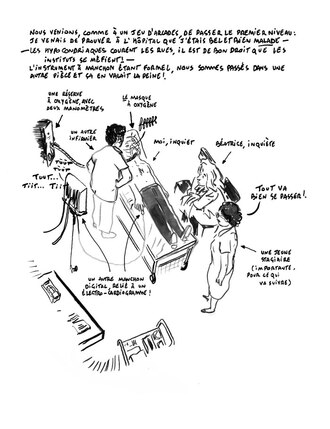 NOUS VENIONS, COMME À UN JEU D'ARCADES, DE PASSER LE PREMIER NIVEAU :
JE VENAIS DE PROUVER À L'HÔPITAL QUE J'ÉTAIS BEL ET BIEN MALADE —
— LES HYPOCONDRIAQUES COURENT LES RUES, IL EST DE BON DROIT QUE LES
INSTITUTS SE MÉFIENT ! —
L'INSTRUMENT À MANCHON ÉTANT FORMEL, NOUS SOMMES PASSÉS DANS UNE
AUTRE PIÈCE ET ÇA EN VALAIT LA PEINE !
UNE RÉSERVE
D'OXYGÈNE, AVEC
DEUX MANOMÈTRES
LE MASQUE
À OXYGÈNE
UN AUTRE
INFIRMIER
MOI, INQUIET
BÉATRICE, INQUIÈTE
TUUT
TUUT
TUUT...
TIIT... TII
TOUT VA
BIEN SE PASSER !
UNE JEUNE
STAGIAIRE
(IMPORTANTE,
POUR CE QUI
VA SUIVRE)
UN AUTRE MANCHON
DIGITAL, RELIÉ À UN
ÉLECTRO-CARDIOGRAMME !